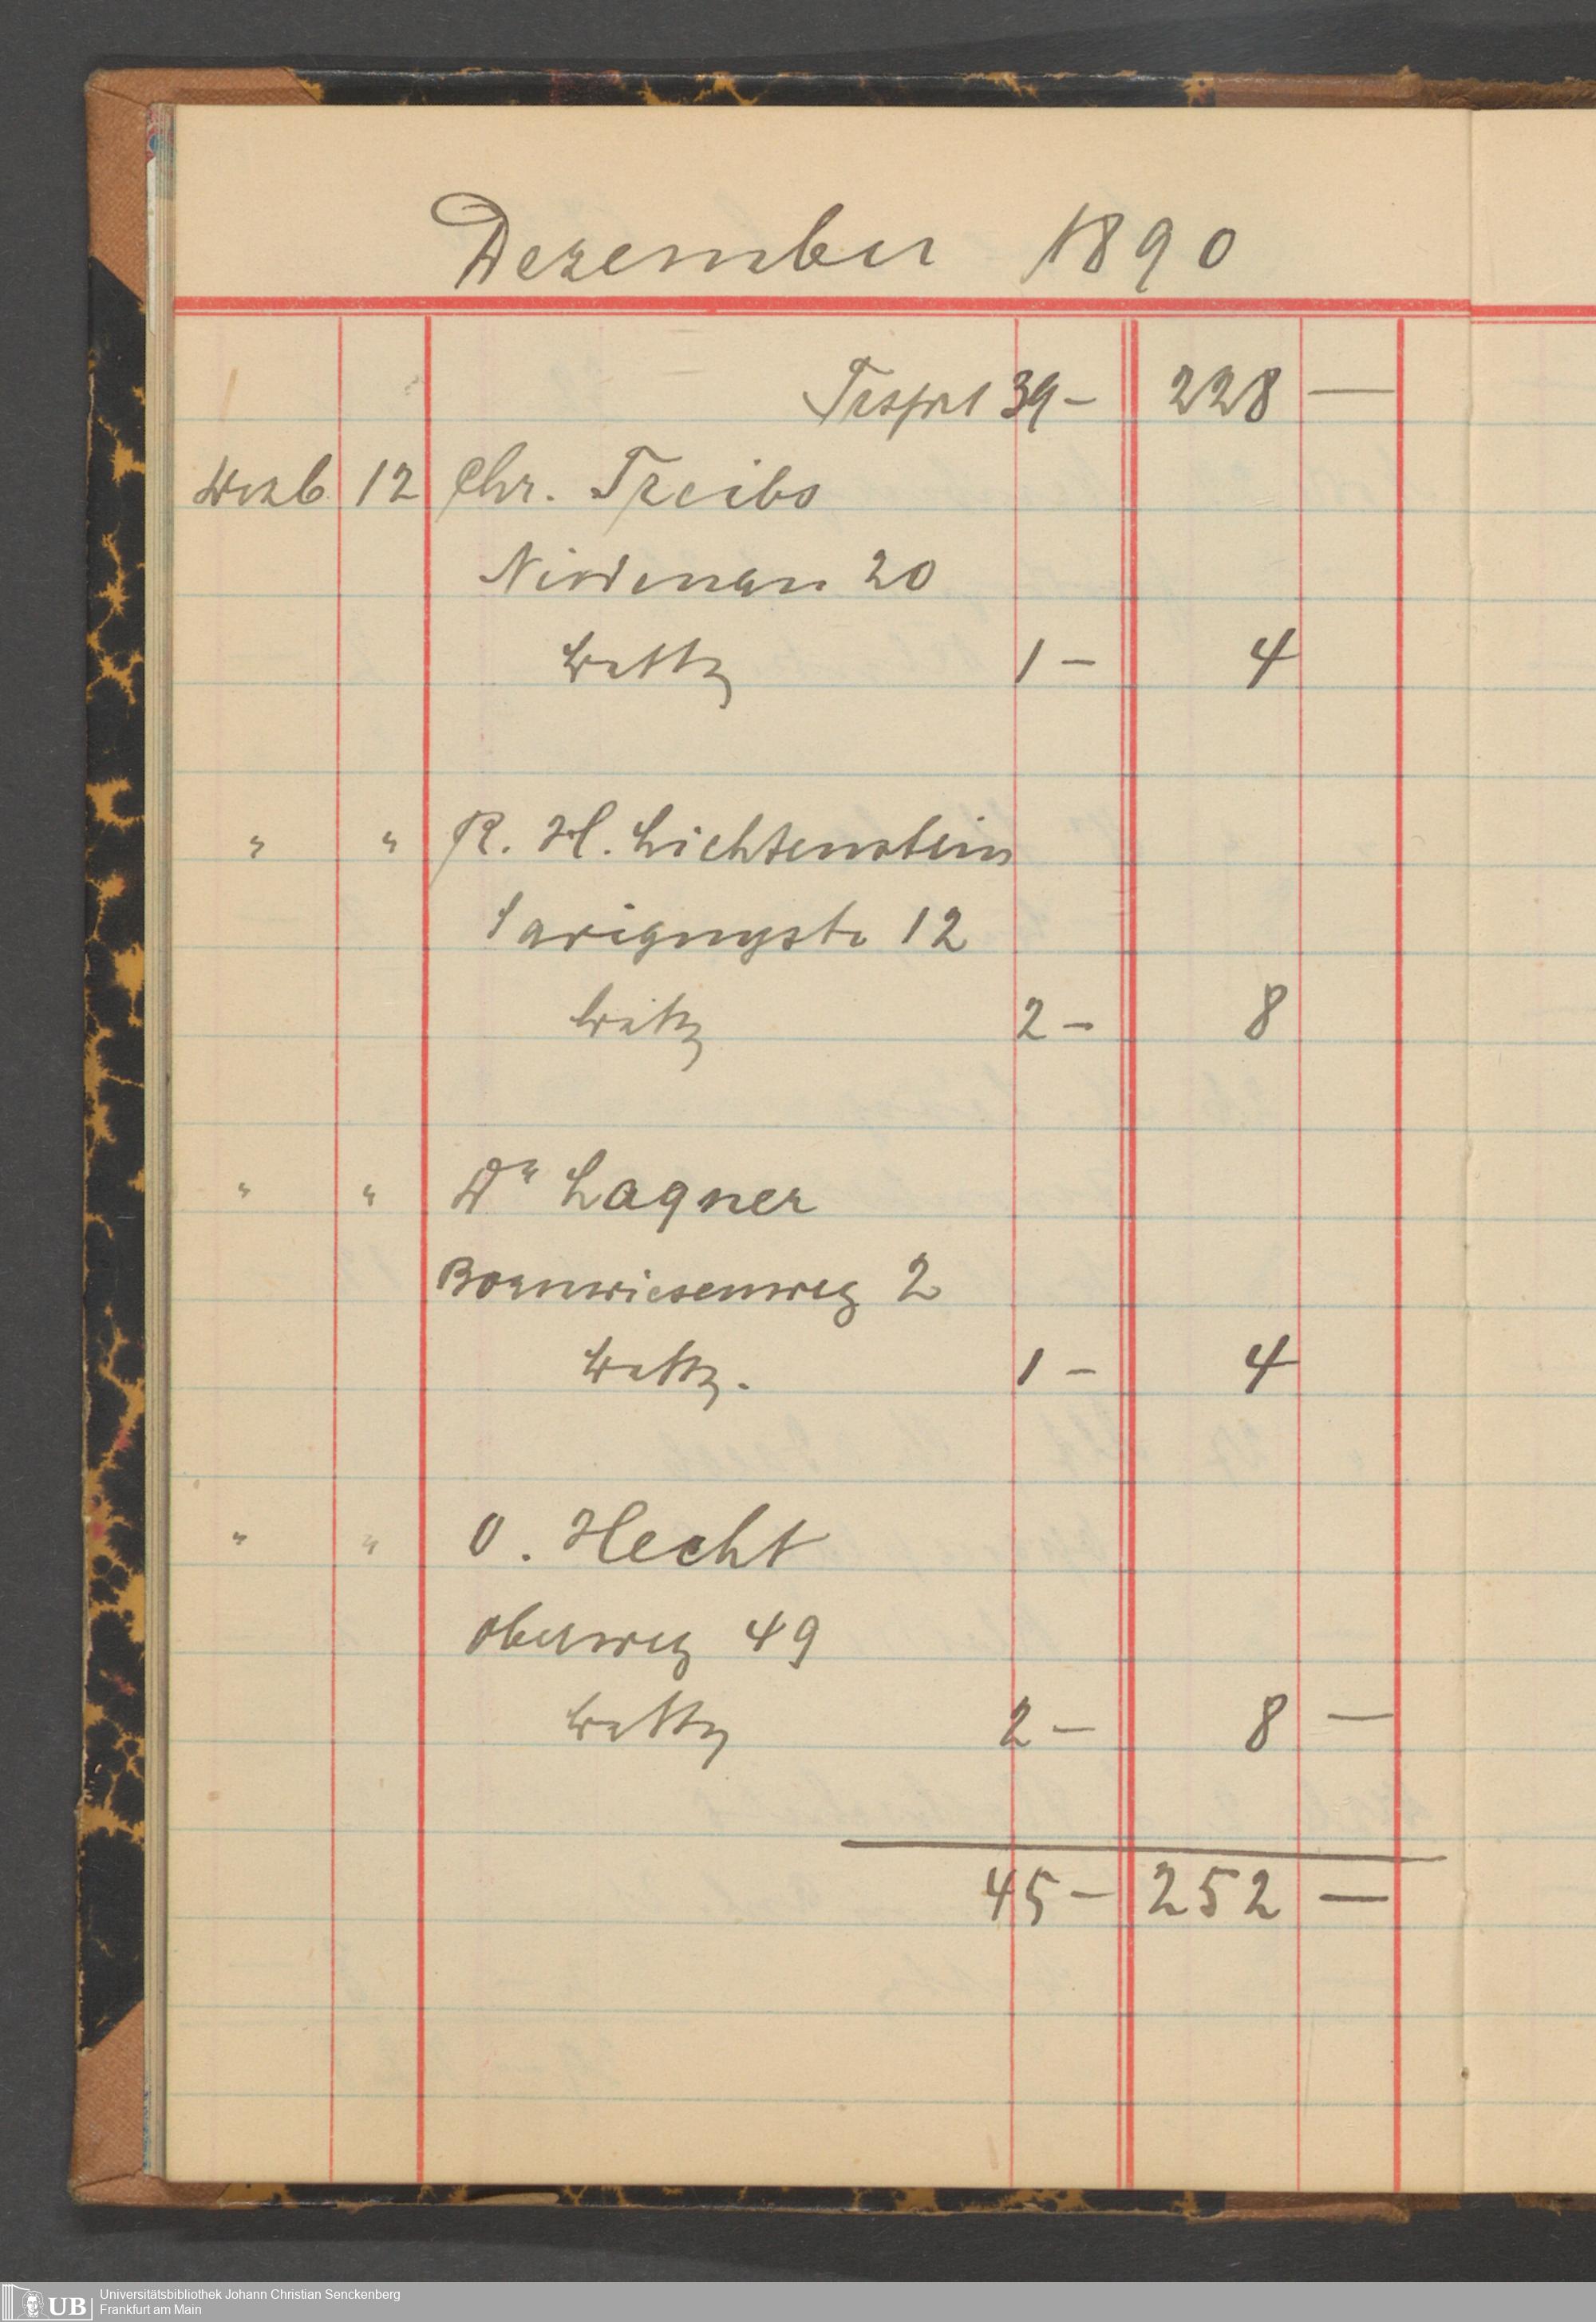 Dezember 1890
Trsprt 39 — 228 —
Dezb 12 Chr. Treibs
Niedenau 20
1 — 4
" " R. H. Lichtenstein
Savignystr 12
2 — 8
" " Dr Laquer
Bornwiesenweg 2
1 — 4
" " O. Hecht
Oberweg 49
2 — 8 —
45 — 252 —
UB Universitätsbibliothek Johann Christian Senckenberg
Frankfurt am Main